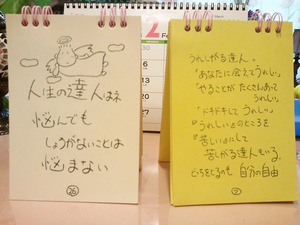 人生の達人はネ
悩んでも
しょうがないことは
悩まない
26
うれしがる達人。
「あなたに会えてうれしい」
「やることがたくさんあって
うれしい」
「ドキドキしてうれしい」
『うれしい』のところを
『苦しい』にして
苦しがる達人もいる。
どっちをとるのも 自分の自由
2